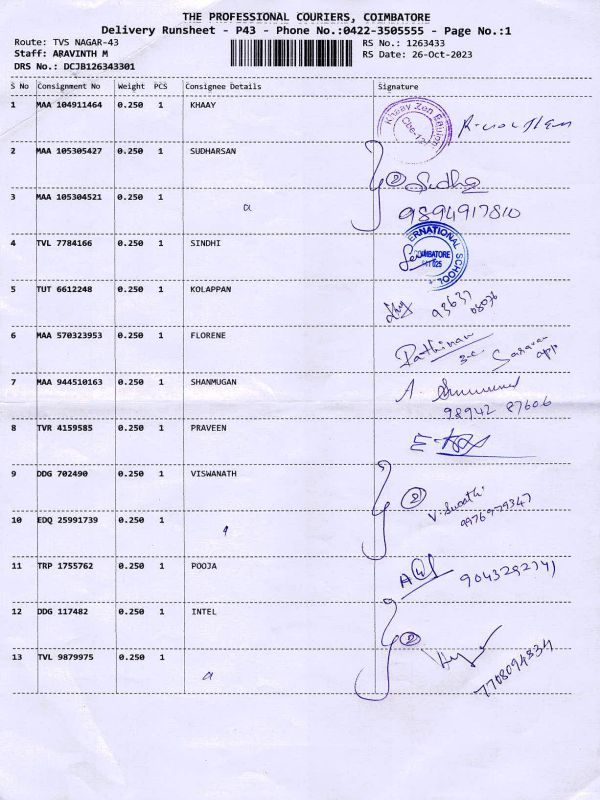 THE PROFESSIONAL COURIERS, COIMBATORE
Delivery Runsheet - P43 - Phone No.:0422-3505555 - Page No.:1
Route: TVS NAGAR-43 RS No.: 1263433
Staff: ARAVINTH M RS Date: 26-Oct-2023
DRS No.: DCJB126343301
S No Consignment No Weight PCS Consignee Details Signature
1 MAA 104911464 0.250 1 KHAAY
Khaay Zen Edition
2 MAA 105305427 0.250 1 SUDHARSAN
2 Sudha
3 MAA 105304521 0.250 1 a
9894917810
4 TVL 7784166 0.250 1 SINDHI
ERNATIONAL SCHOOL
COIMBATORE
5 TUT 6612248 0.250 1 KOLAPPAN
93637
08036
6 MAA 570323953 0.250 1 FLORENE
Rathinam
7 MAA 944510163 0.250 1 SHANMUGAN
98942 87606
8 TVR 4159585 0.250 1 PRAVEEN
9 DDG 702490 0.250 1 VISWANATH
2 V. Swathi
9976979347
10 EDQ 25991739 0.250 1
11 TRP 1755762 0.250 1 POOJA
9043292741
12 DDG 117482 0.250 1 INTEL
2
7708094834
13 TVL 9879975 0.250 1 a